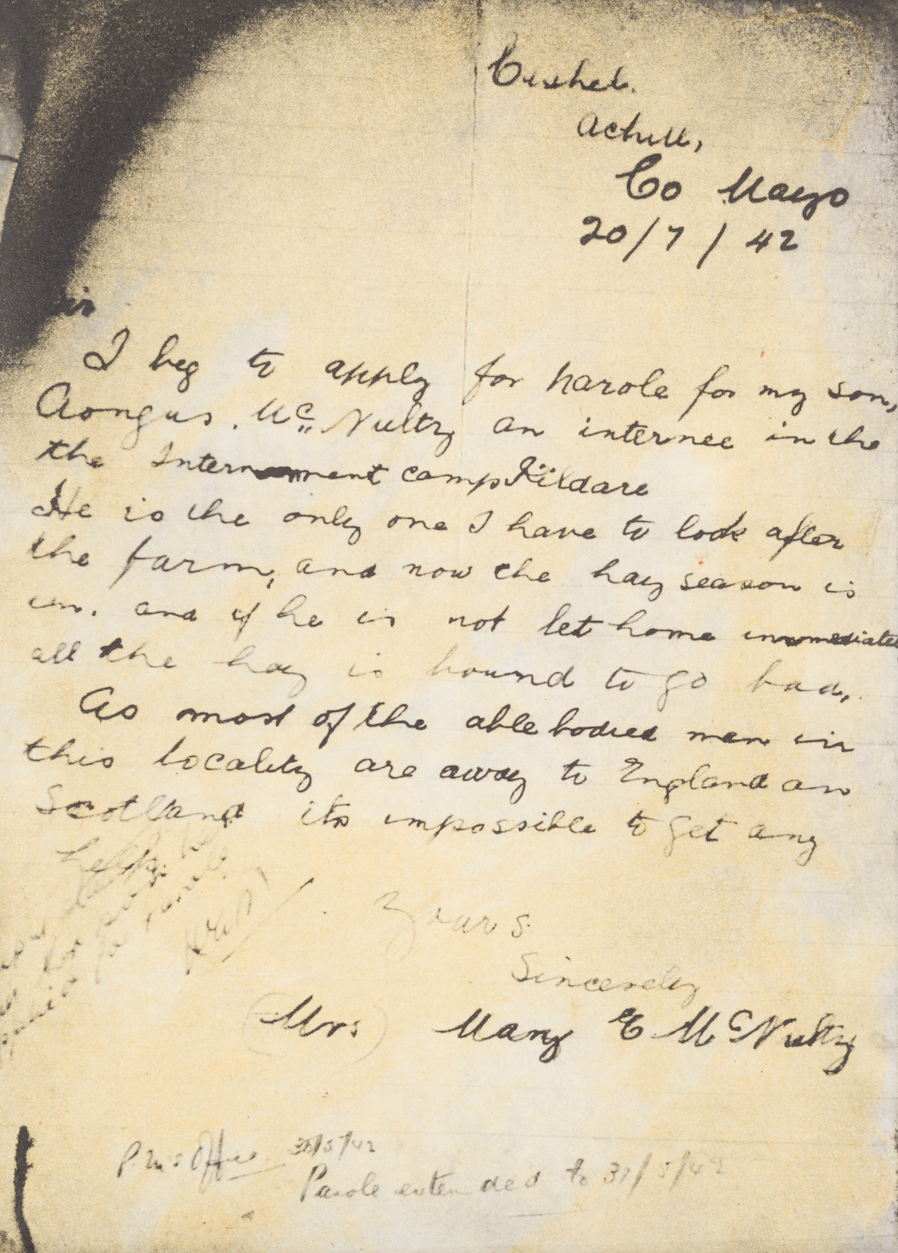 Achill,
Co Mayo
20/7/42
I beg to apply for parole for my son,
Aongus. McNulty an internee in the
the Internment camp Kildare
He is the only one I have to look after
the farm, and now the hay season is
in. and if he is not let home
all the hay is bound to go bad,
As most of the able bodied men in
this locality are away to England an
Scotland its impossible to get any
help.
Yours
Sincerely
(Mrs) Mary E McNulty
P.M's Office
Parole extended to